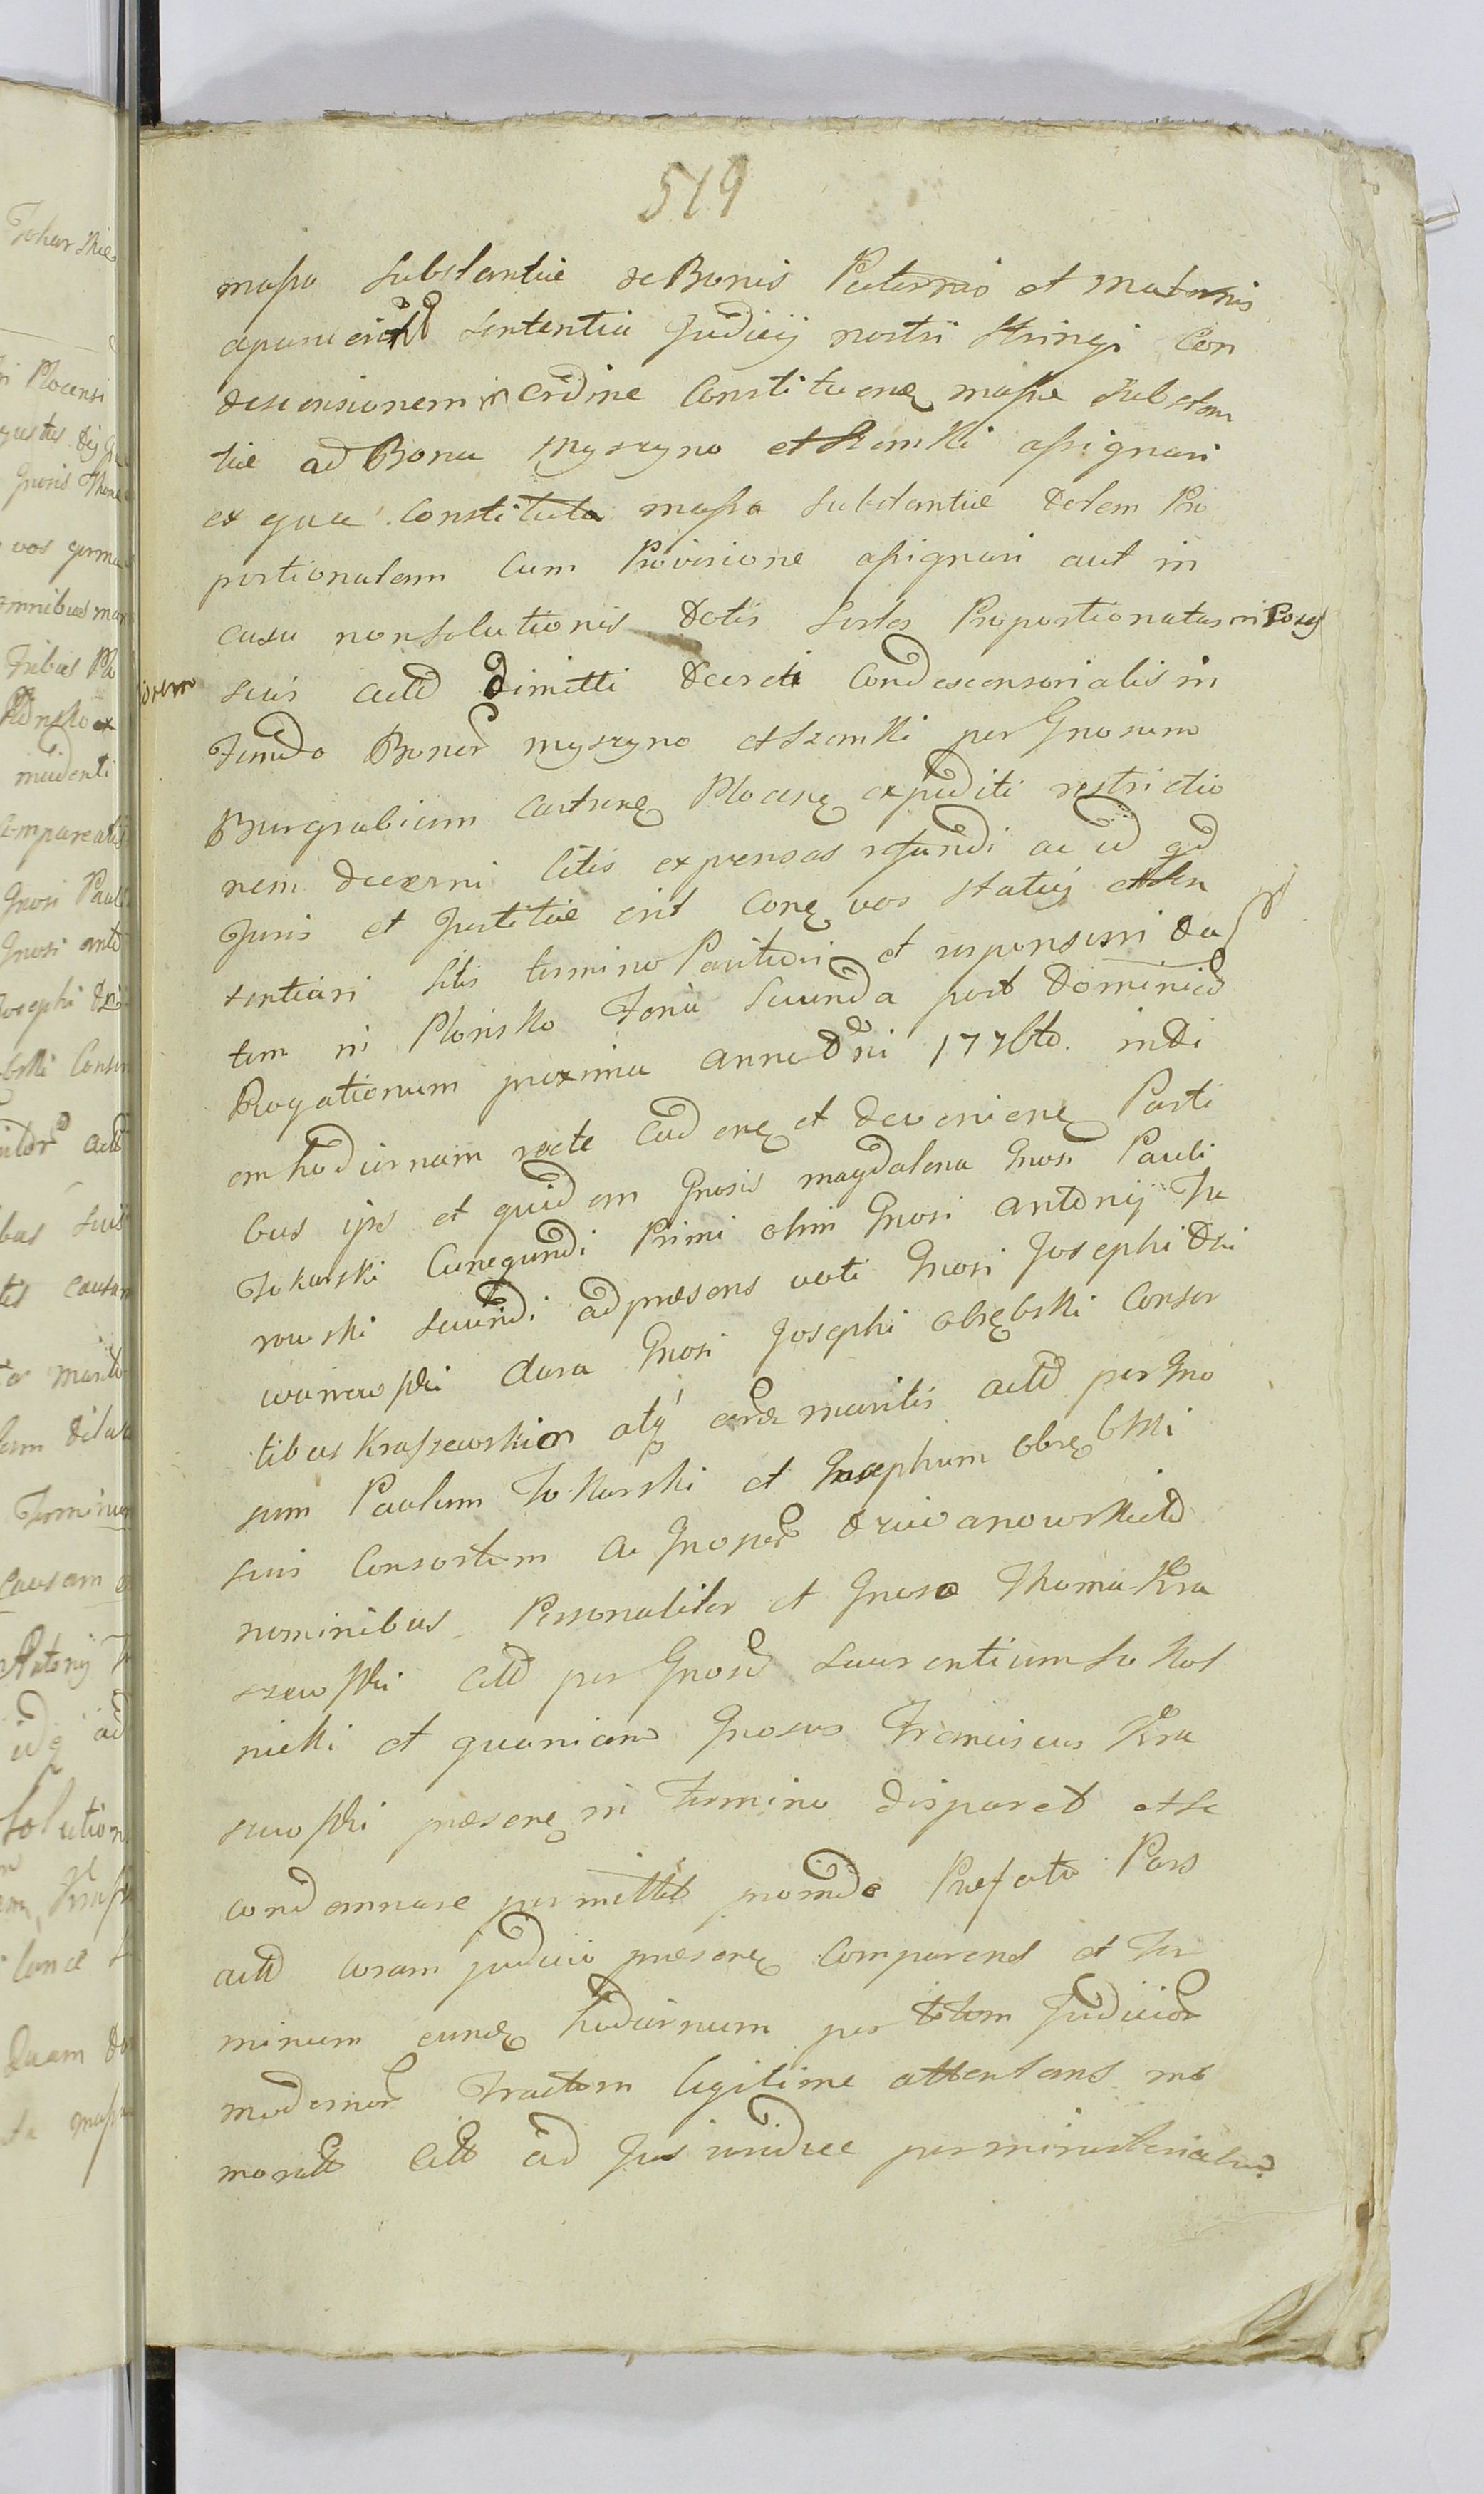 519
massa Substantiae de Bonis Paternis et Maternis
sententia Judicij nostri Stringi Con
descensionem in ordine Constituenę massae Substan
tiae ad Bona Myszyno et Szemki assignari
ex qua Constituta massa Substantiae Dotem Pro
portionatam Cum Provisione assignari aut in
casu non solutionis Dotis Sortes Proportionatas in Poses
sionem
suis actd dimitti Decreti Condescensorialis in
Fundo Bonor Myszyno et Szemki per Gnosum
Burgrabium Castrenę Plocenę expediti restrictio
nem decerni litis expensas refundi ac id qd
Juris et Justitiae erit Conę vos statuj et Sen
tentiari Sitis termino Parituri et responsuri Da
tum in Plonsko Feria Secunda post Dominicā
Rogationum proxima anno Dni 177 indi
em hodiernam recte Cadenę et deveniene Parti
bus ipis et quidem Gnosis Magdalena Gnosi Pauli
Tokarski Cunegundi Primi olim Gnosi Antonij Tu
rowski Secundi ad praesens voti Gnosi Josephi Dzi
wanowski Clara Gnosi Josephi Obrębski Consor
tibus Kraszewskim atq eard maritis actd per Gno
sum Paulum Tokarski et Josephum Obrębski
suis Consortum ac Dziewanowski
nominibus Personaliter et Gnoso Thoma Kra
szewski Citd per Gnosū Laurentium Sokol
nicki et quoniam Gnosus Franciscus Kra
szewski praesenę in Termino disparet et se
condemnare permittit proinde Praefata Pars
actd coram Judicio praesenę Comparens et Ter
minum eunę hodiernum per totum Judicior
modernor Tractum legitime attentans me
morat Citt ad Jus vendicae per ministerialem